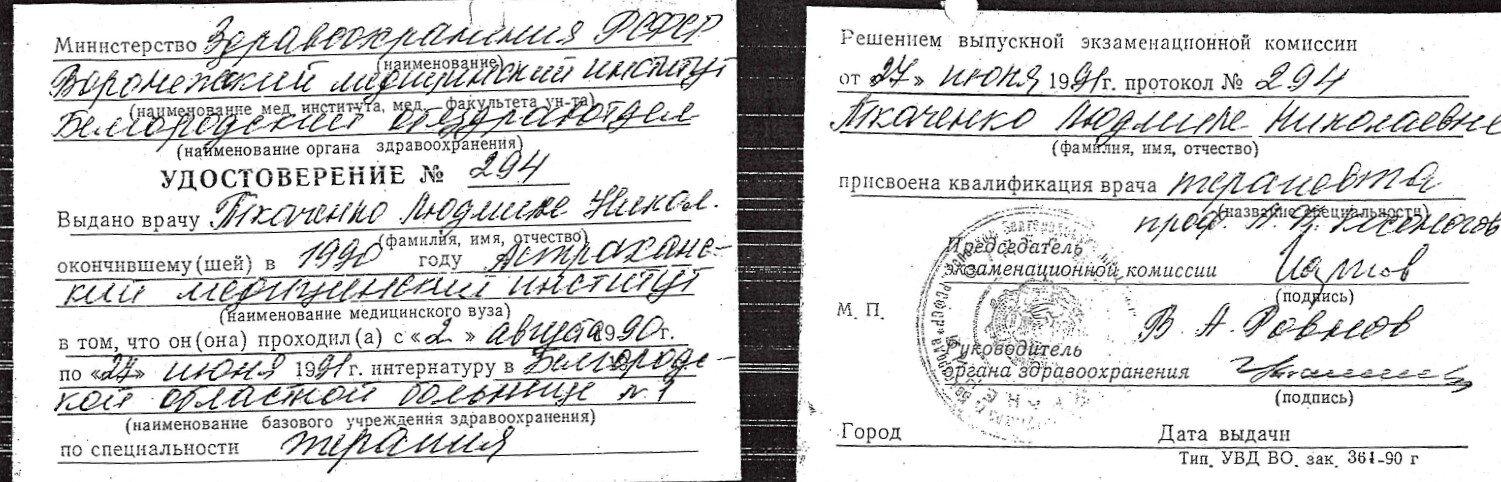 Министерство Здравоохранения РСФСР
(наименование)
Воронежский медицинский институт
(наименование мед. института, мед. факультета ун-та)
Белгородский облздравотдел
(наименование органа здравоохранения)
УДОСТОВЕРЕНИЕ № 294
Выдано врачу Ткаченко Людмиле Никол.
(фамилия, имя, отчество)
окончившему(шей) в 1990 году Астраханс-
кий медицинский институт
(наименование медицинского вуза)
в том, что он(она) проходил(а) с «2» августа 1990г.
по «27» июня 1991г. интернатуру в Белгородс-
кой областной больнице № 1
(наименование базового учреждения здравоохранения)
по специальности терапия
Решением выпускной экзаменационной комиссии
от «27» июня 1991г. протокол № 294
Ткаченко Людмиле Николаевне
(фамилия, имя, отчество)
присвоена квалификация врача терапевта
(название специальности)
проф.
Председатель
экзаменационной комиссии
(подпись)
М. П.
В. А.
Руководитель
органа здравоохранения
(подпись)
Город Дата выдачи
Тип. УВД ВО. зак. 361-90 г